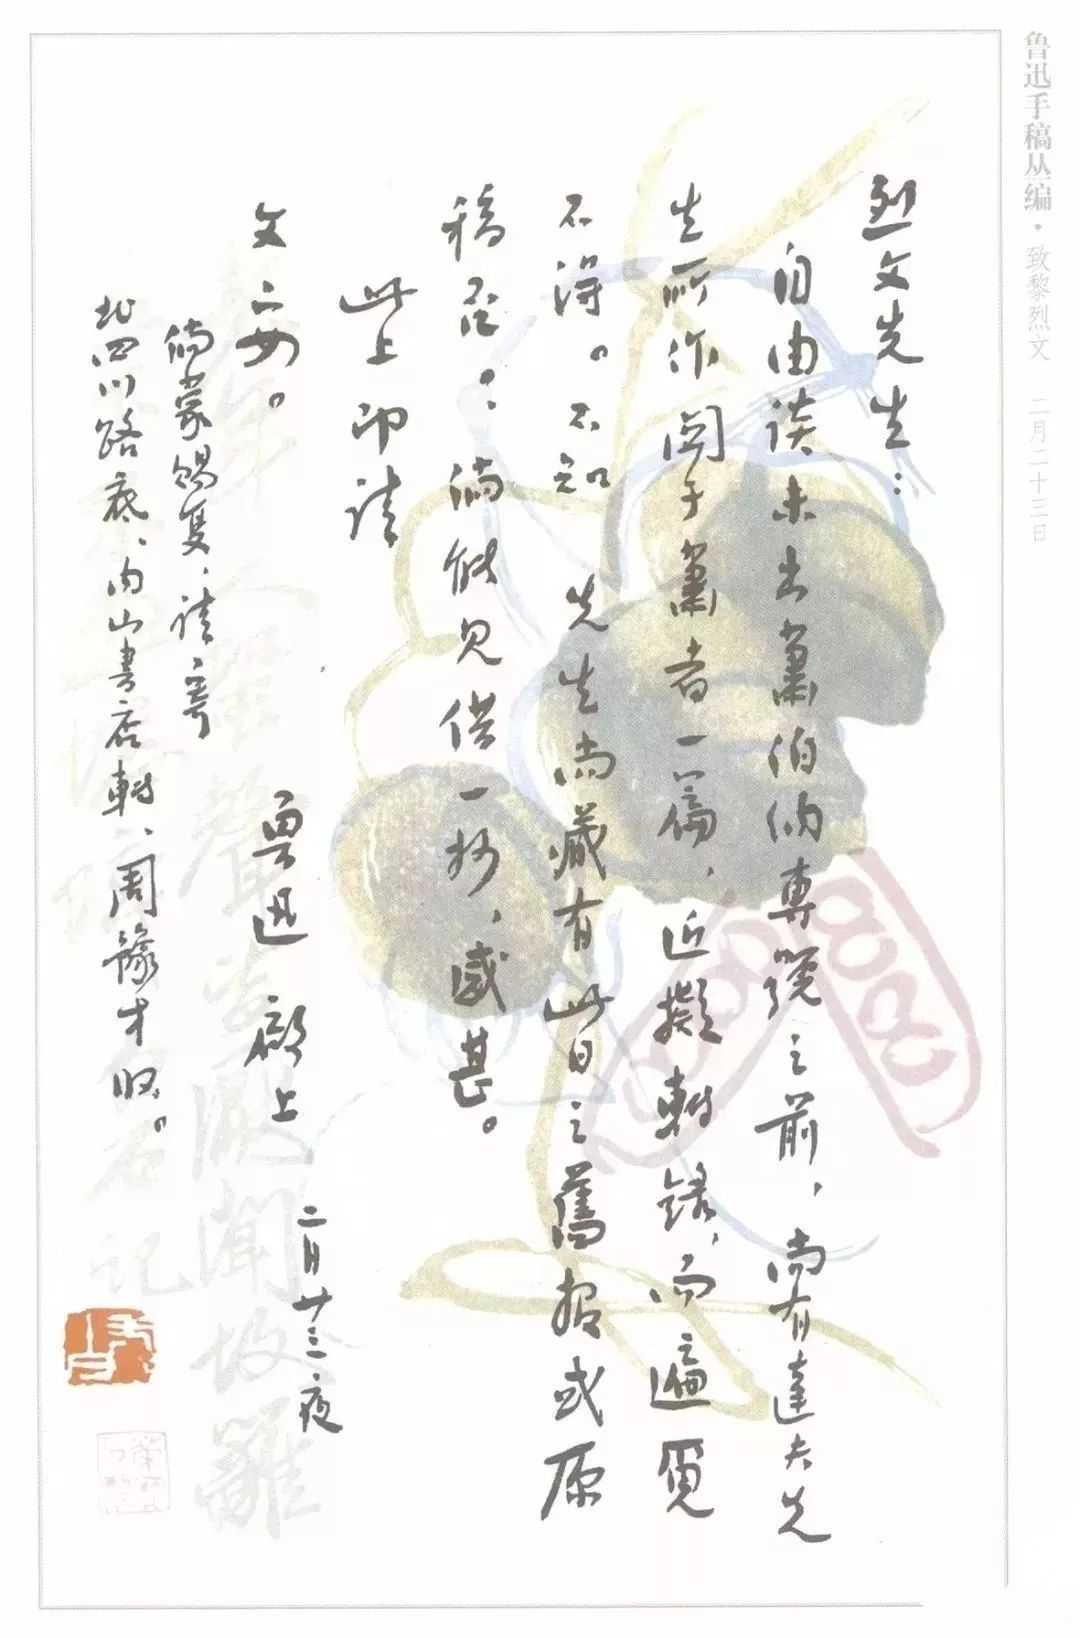 鲁迅手稿丛编·致黎烈文　二月二十三日
烈文先生：
自由谈未出蕭伯納專號之前，尚有達夫先
生所作関于蕭者一篇，近擬轉錄，而遍覓
不得。不知　先生尚藏有此日之舊报或原
稿否？倘能見借一抄，感甚。
此上即请
文安。
魯迅 啟上
二月廿三夜
倘蒙赐复，请寄
北四川路底、内山書店轉、周豫才收。